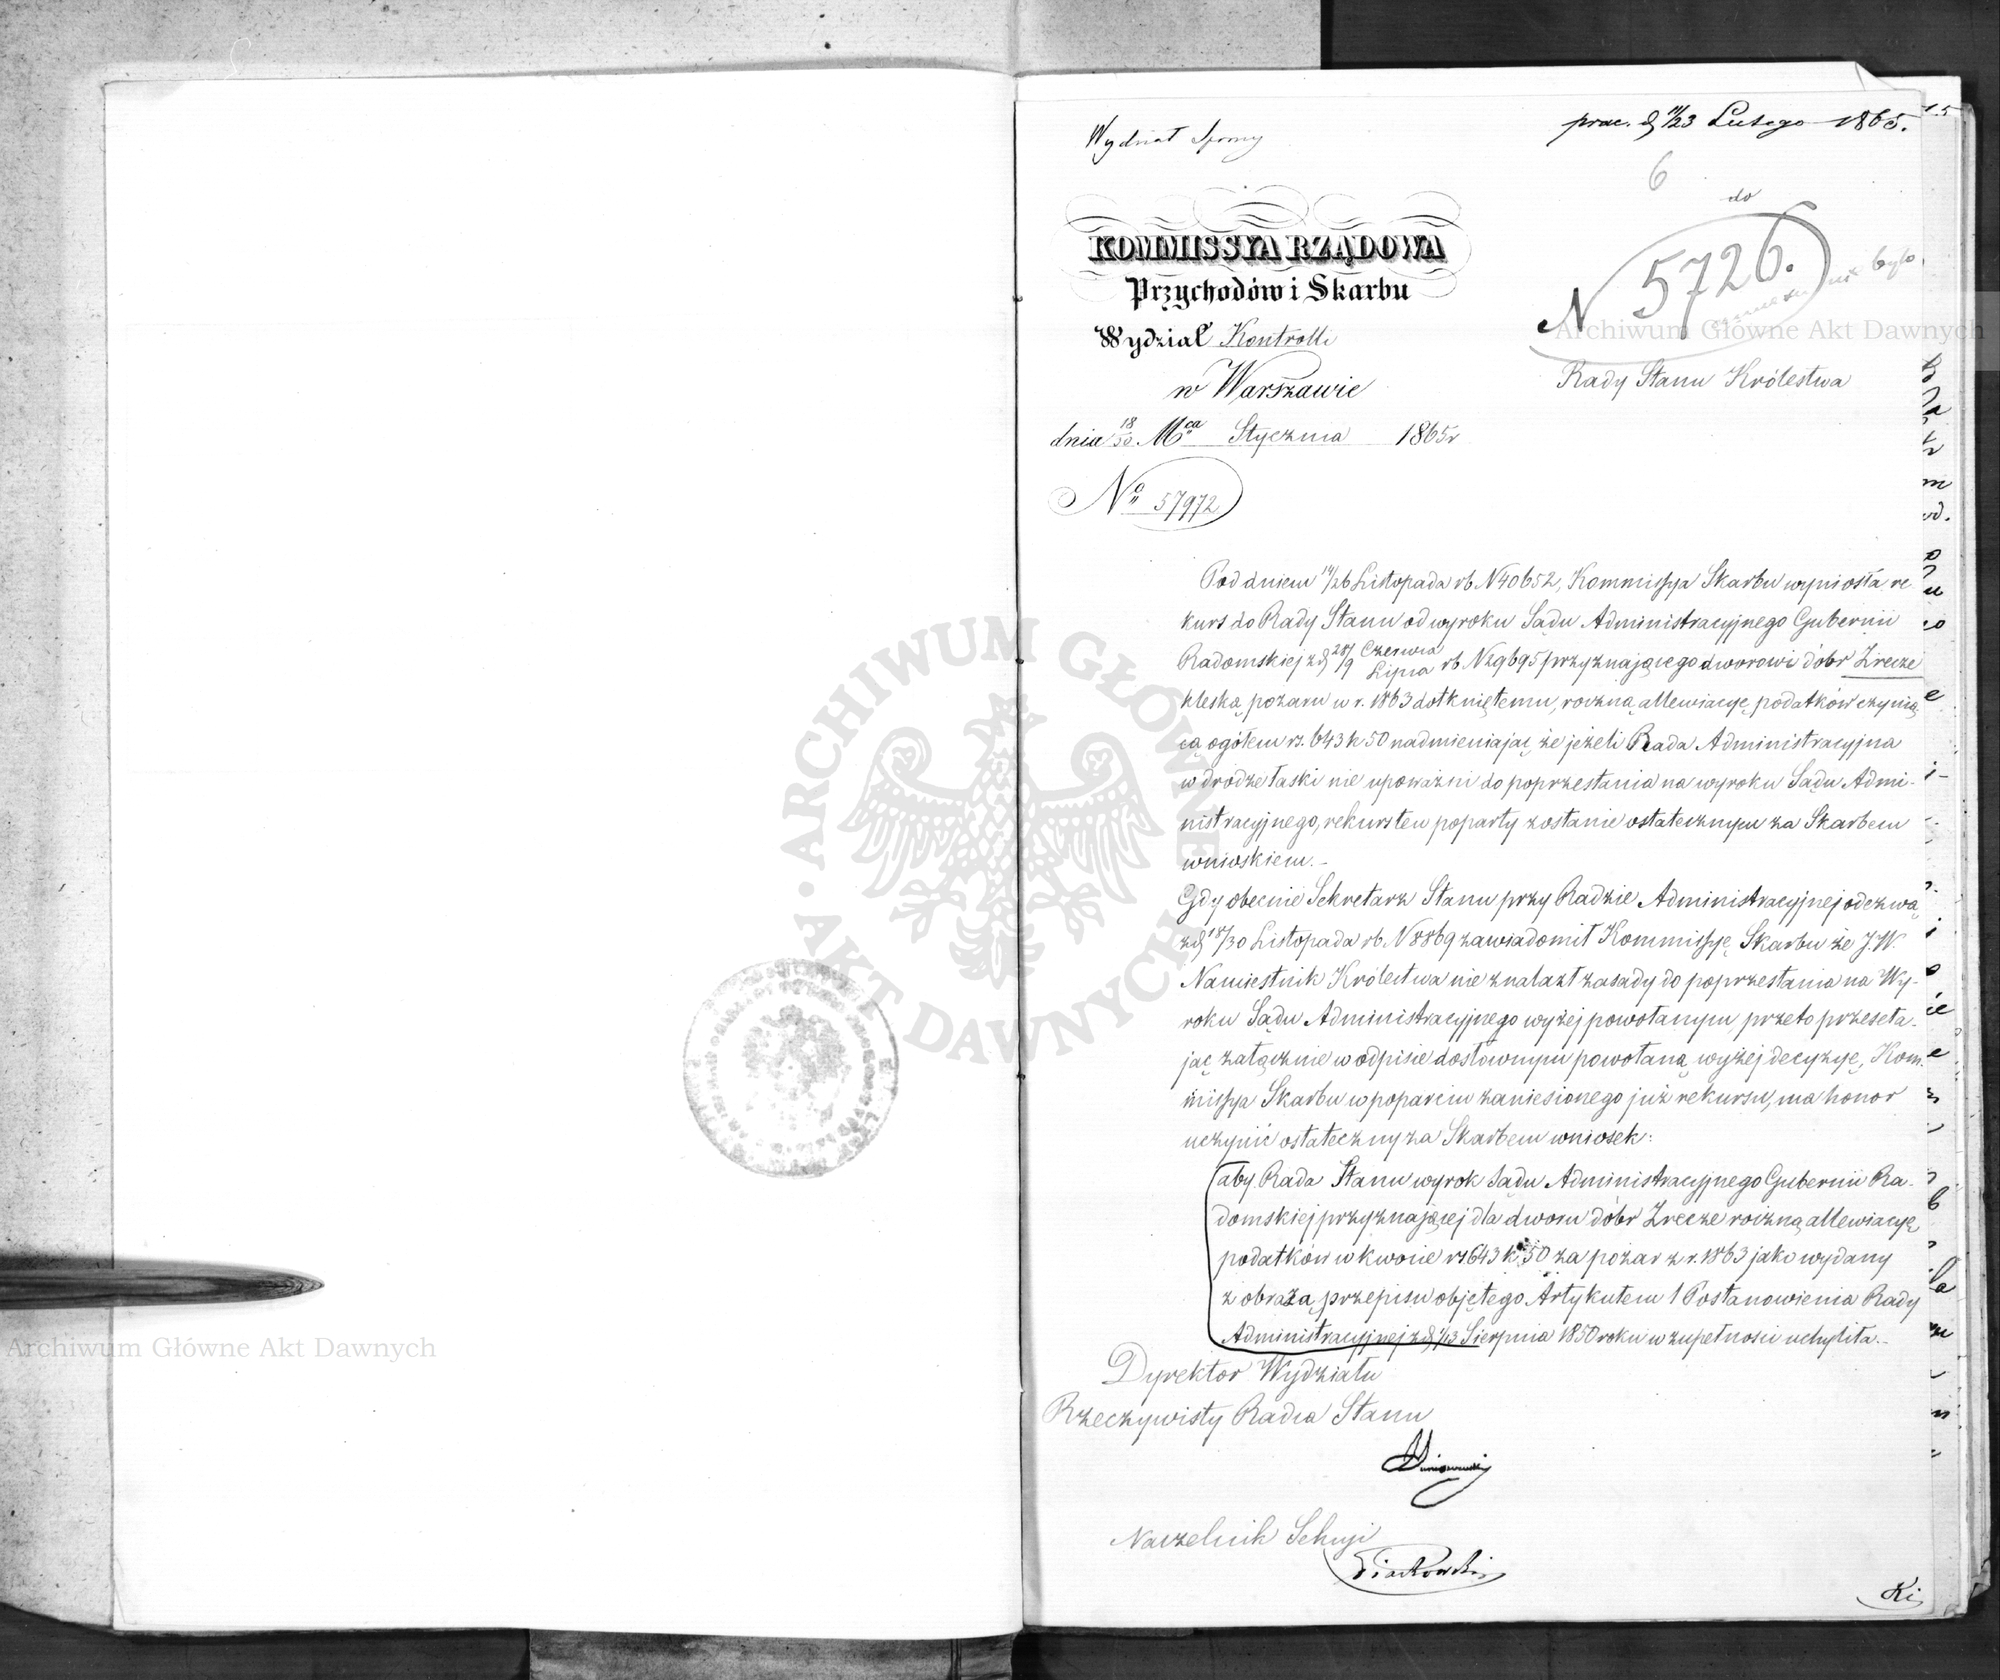 Wydział Sporny
prac. d 11/23 Lutego 1865.
6
do
N 5726.
KOMMISSYA RZĄDOWA
Przychodów i Skarbu
Wydział Kontrolli
w Warszawie
dnia 18/30 Mca Stycznia 1865 r
No 57972
Rady Stanu Królestwa
Pod dniem 14/26 Listopada rb N 40652, Kommissya Skarbu wyniosła re
kurs do Rady Stanu od wyroku Sądu Administracyjnego Gubernii
Radomskiej z d 28/9 Czerwca/Lipca rb N 29695 przyznającego dworowi dóbr Zrecze
klęską pożaru w r. 1863 dotkniętemu, roczną allewiacyę podatków czynią
cą ogółem rs. 643 k 50 nadmieniając że jeżeli Rada Administracyjna
w drodze łaski nie upoważni do poprzestania na wyroku Sądu Admi-
nistracyjnego, rekurs ten poparty zostanie ostatecznym za Skarbem
wnioskiem.-
Gdy obecnie Sekretarz Stanu przy Radzie Administracyjnej odezwą
z d 18/30 Listopada rb. N 8869 zawiadomił Kommissyę Skarbu że J.W.
Namiestnik Królestwa nie znalazł zasady do poprzestania na Wy-
roku Sądu Administracyjnego wyżej powołanym, przeto przeseła-
jąc załącznie w odpisie dosłownym powołaną wyżej decyzyę, Kom-
missya Skarbu w poparciu zaniesionego już rekursu, ma honor
uczynić ostateczny za Skarbem wniosek:
aby Rada Stanu wyrok Sądu Administracyjnego Gubernii Ra-
domskiej przyznającej dla dworu dóbr Zrecze roczną allewiacyę
podatków w kwocie rs 643 k 50 za pożar z r. 1863 jako wydany
z obrazą przepisu objętego Artykułem 1 Postanowienia Rady
Administracyjnej z d 1/13 Sierpnia 1850 roku w zupełności uchyliła.-
Dyrektor Wydziału
Rzeczywisty Radca Stanu
Naczelnik Sekcyi
Piatkowski
Ki
Archiwum Główne Akt Dawnych
Archiwum Główne Akt Dawnych
ARCHIWUM GŁÓWNE AKT DAWNYCH